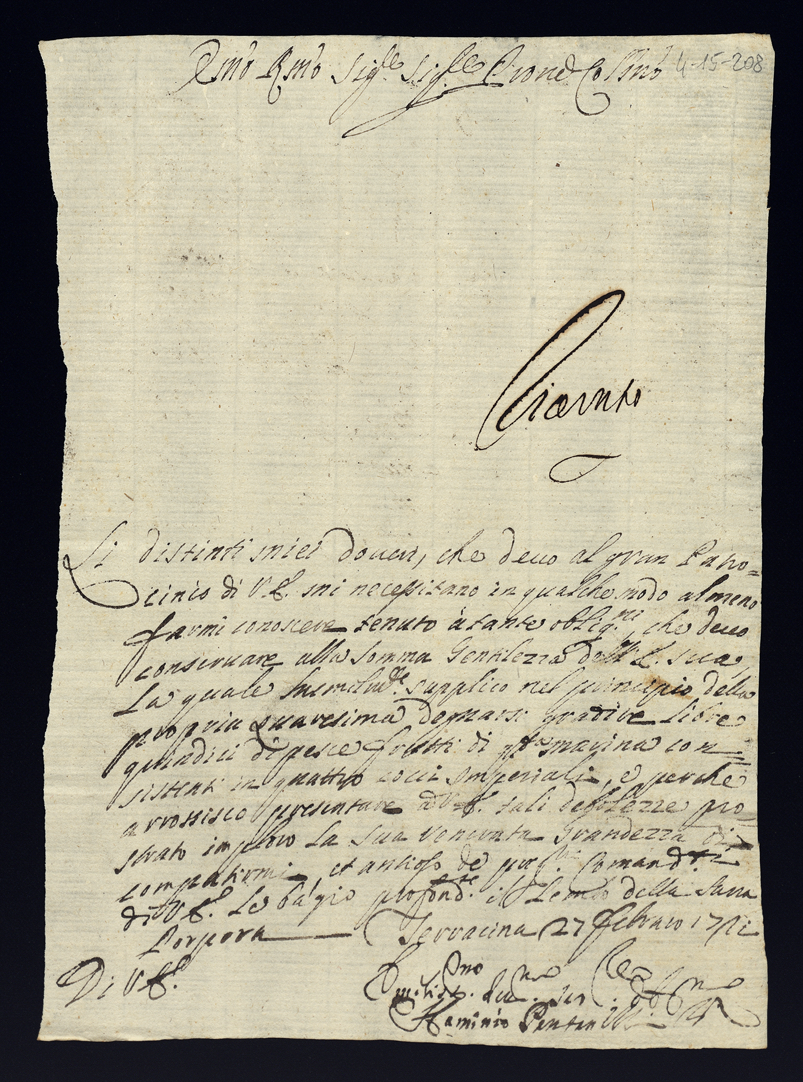 Emo Rmo Sigle Sigle Pione Colmo 4-15-208
Li distinti miei doueri, che deuo al gran Patro=
cinio di V. E. mi necessitano in qualche modo almeno
farmi conoscere tenuto à tante obligni che deuo
conseruare alla somma Gentilezza dell'E. sua,
La quale humilmte supplico nel principio della
propria quaresima degnarsi gradire libre
quindici di pesce frutti di qta marina con=
sistenti in quattro cocci Imperiali, e perche
arrossisco presentare a V. E. tali debolezze pro=
strato imploro la sua veneranta Grandezza di
compatirmi, et ansioso de Comandti
di V. E. Le bagio profondte il Lembo della Sacra
Porpora Terracina 27 febraro
Di V. E.
Humilissmo
Flaminio